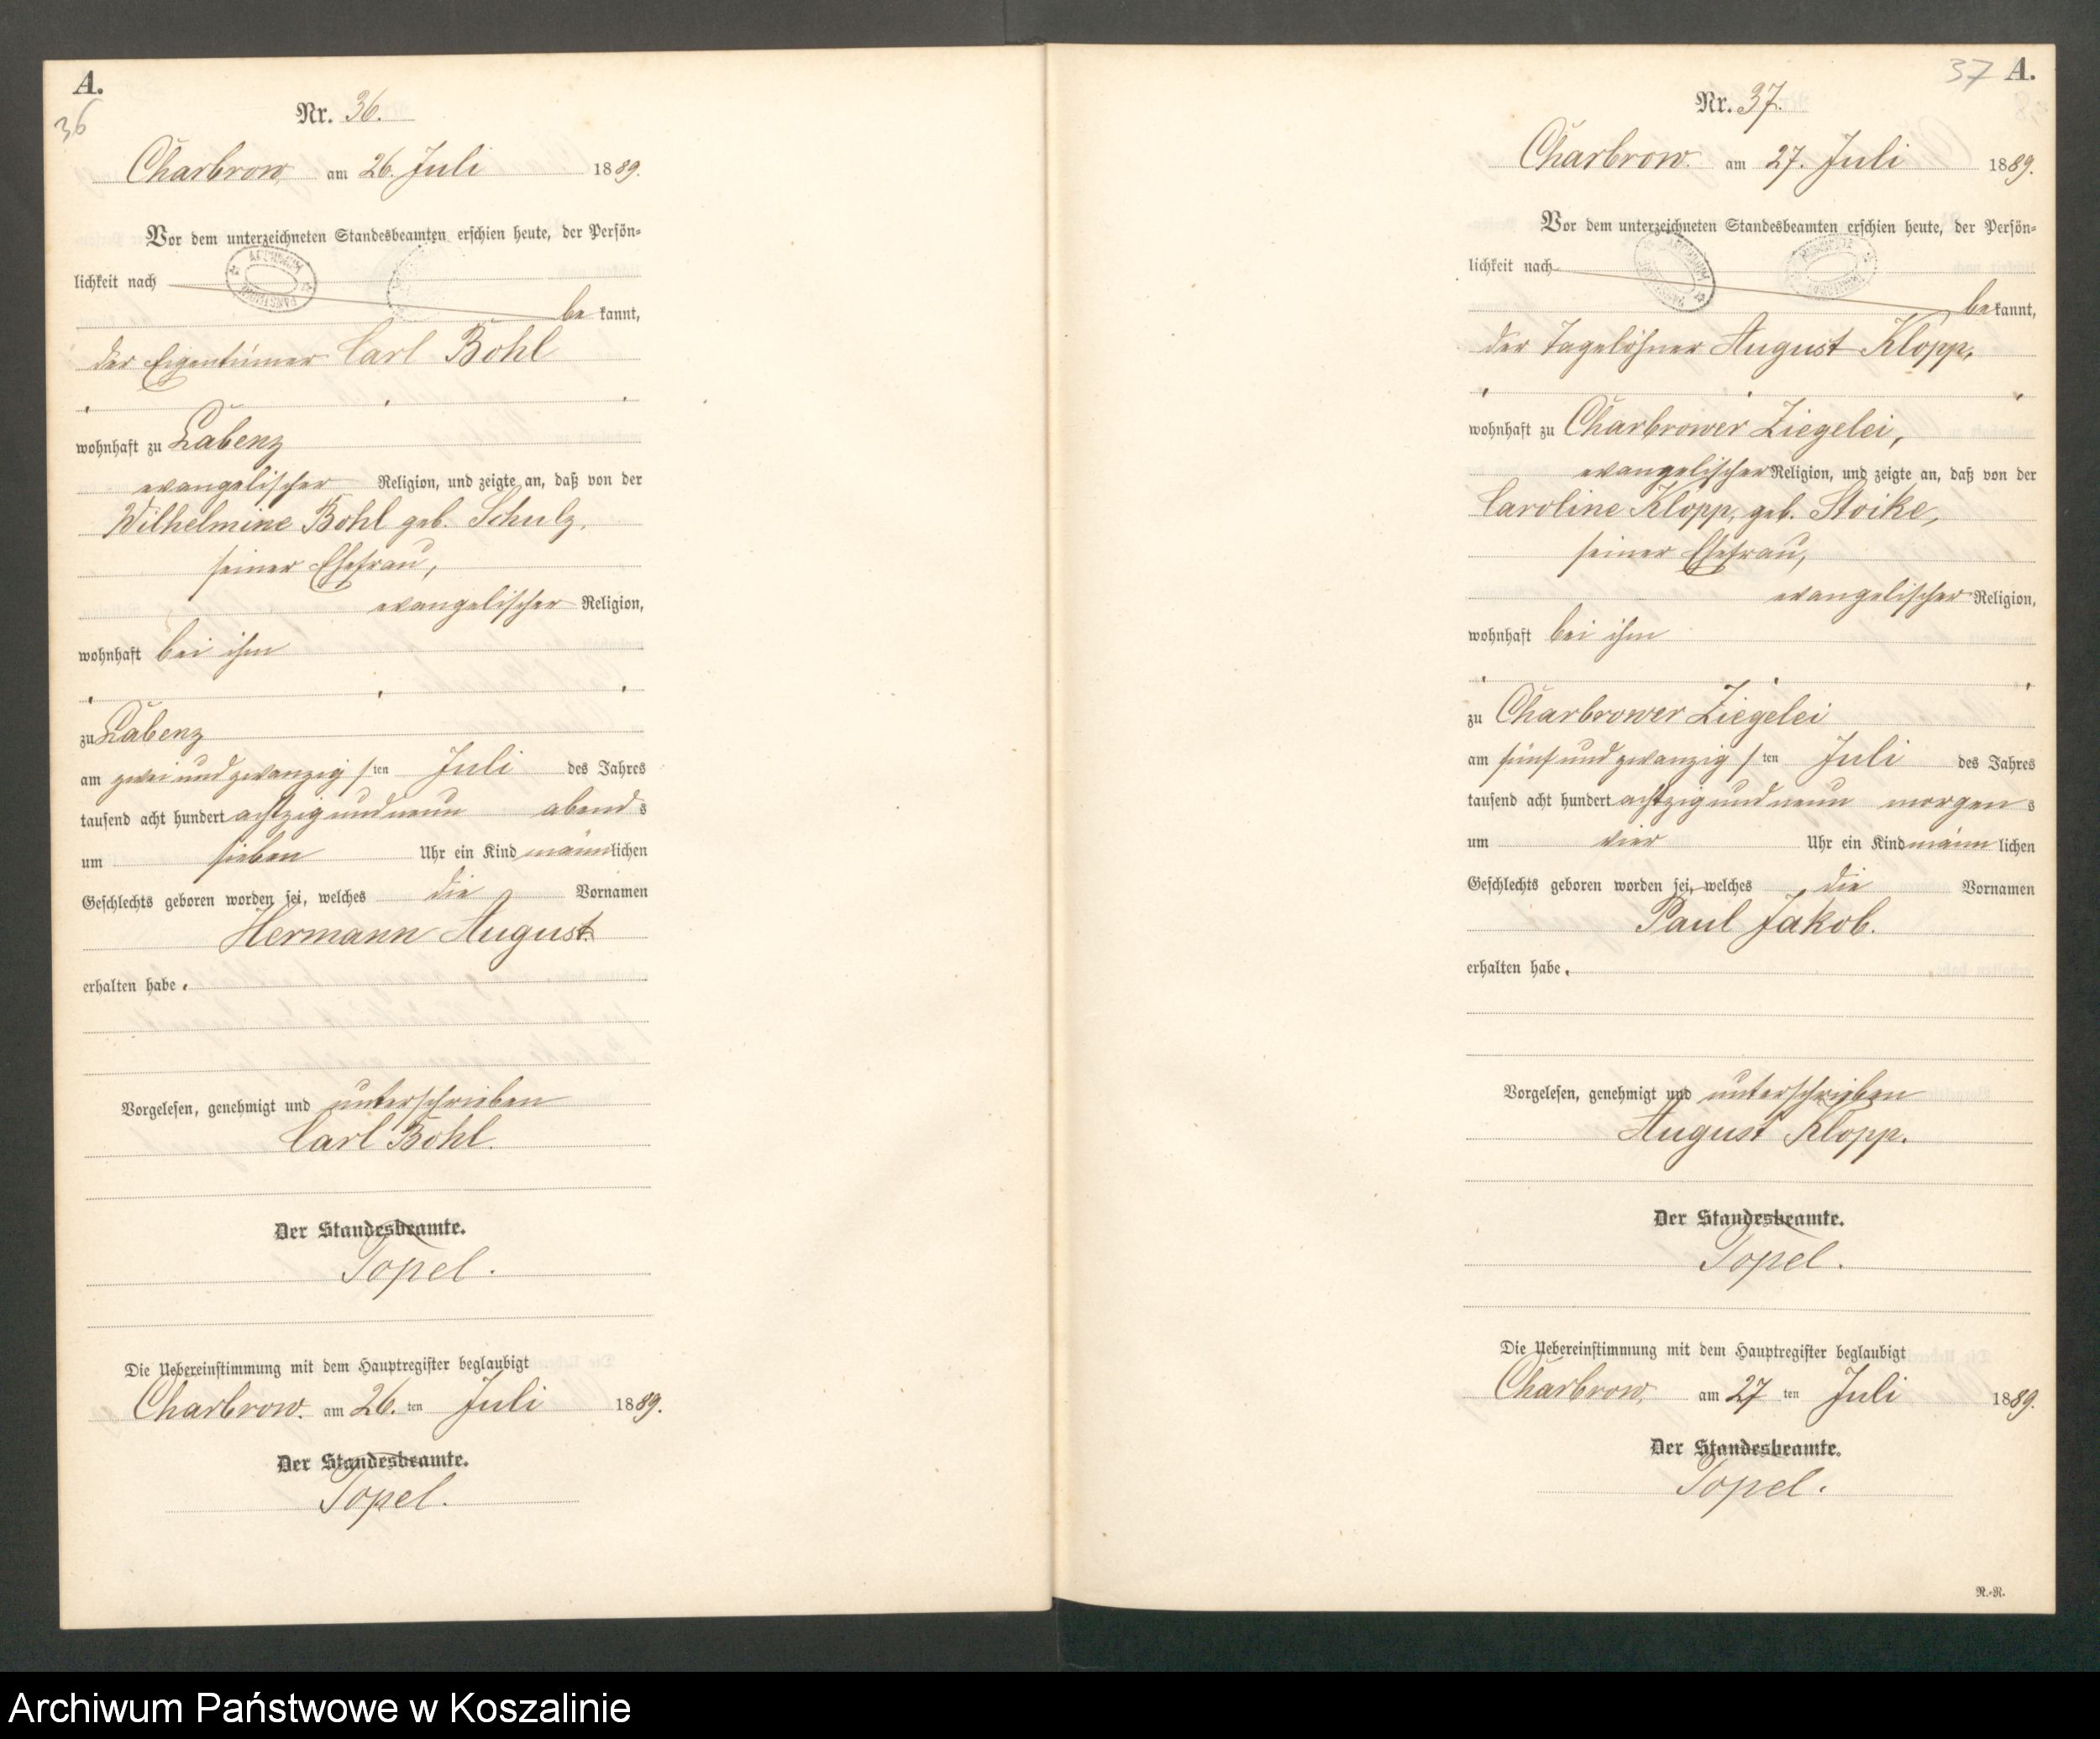 A.
36
Nr. 36.
Charbrow, am 26. Juli 1889.
Vor dem unterzeichneten Standesbeamten erschien heute, der Persön=
lichkeit nach
bekannt,
der Eigentümer Carl Bohl
wohnhaft zu Labenz
evangelischer Religion, und zeigte an, daß von der
Wilhelmine Bohl geb. Schulz,
seiner Ehefrau,
evangelischer Religion,
wohnhaft bei ihm
zu Labenz
am zwei und zwanzigsten Juli des Jahres
tausend acht hundert achtzig und neun abends
um sieben Uhr ein Kind männlichen
Geschlechts geboren worden sei, welches die Vornamen
Hermann August
erhalten habe.
Vorgelesen, genehmigt und unterschrieben
Carl Bohl.
Der Standesbeamte.
Topel.
Die Uebereinstimmung mit dem Hauptregister beglaubigt
Charbrow. am 26. ten Juli 1889.
Der Standesbeamte.
Topel.
37 A.
Nr. 37.
Charbrow. am 27. Juli 1889.
Vor dem unterzeichneten Standesbeamten erschien heute, der Persön=
lichkeit nach
bekannt,
der Tagelöhner August Klopp,
wohnhaft zu Charbrower Ziegelei,
evangelischer Religion, und zeigte an, daß von der
Caroline Klopp, geb. Stoike,
seiner Ehefrau,
evangelischer Religion,
wohnhaft bei ihm
zu Charbrower Ziegelei
am fünf und zwanzigsten Juli des Jahres
tausend acht hundert achtzig und neun morgens
um vier Uhr ein Kind männlichen
Geschlechts geboren worden sei, welches die Vornamen
Paul Jakob.
erhalten habe.
Vorgelesen, genehmigt und unterschrieben
August Klopp.
Der Standesbeamte.
Topel.
Die Uebereinstimmung mit dem Hauptregister beglaubigt
Charbrow, am 27 ten Juli 1889.
Der Standesbeamte.
Topel.
R.-R.
Archiwum Państwowe w Koszalinie